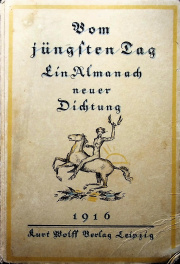 Vom
jüngsten Tag
Ein Almanach
neuer
Dichtung
1916
Kurt Wolff Verlag Leipzig